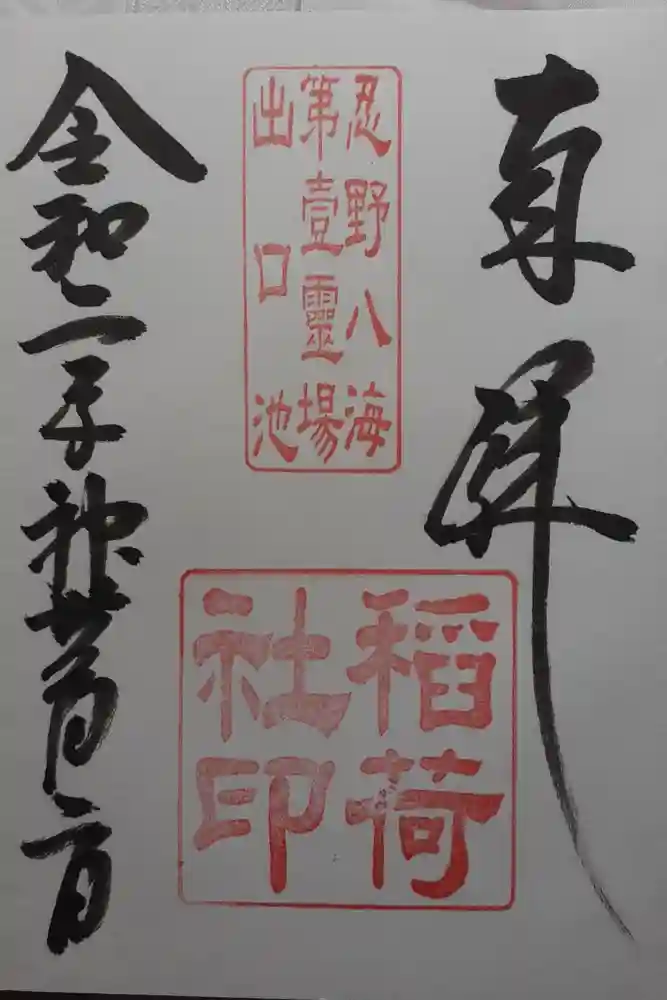 奉拝
忍野八海
第壹靈場
出口池
稲荷
社印
令和二年神無月